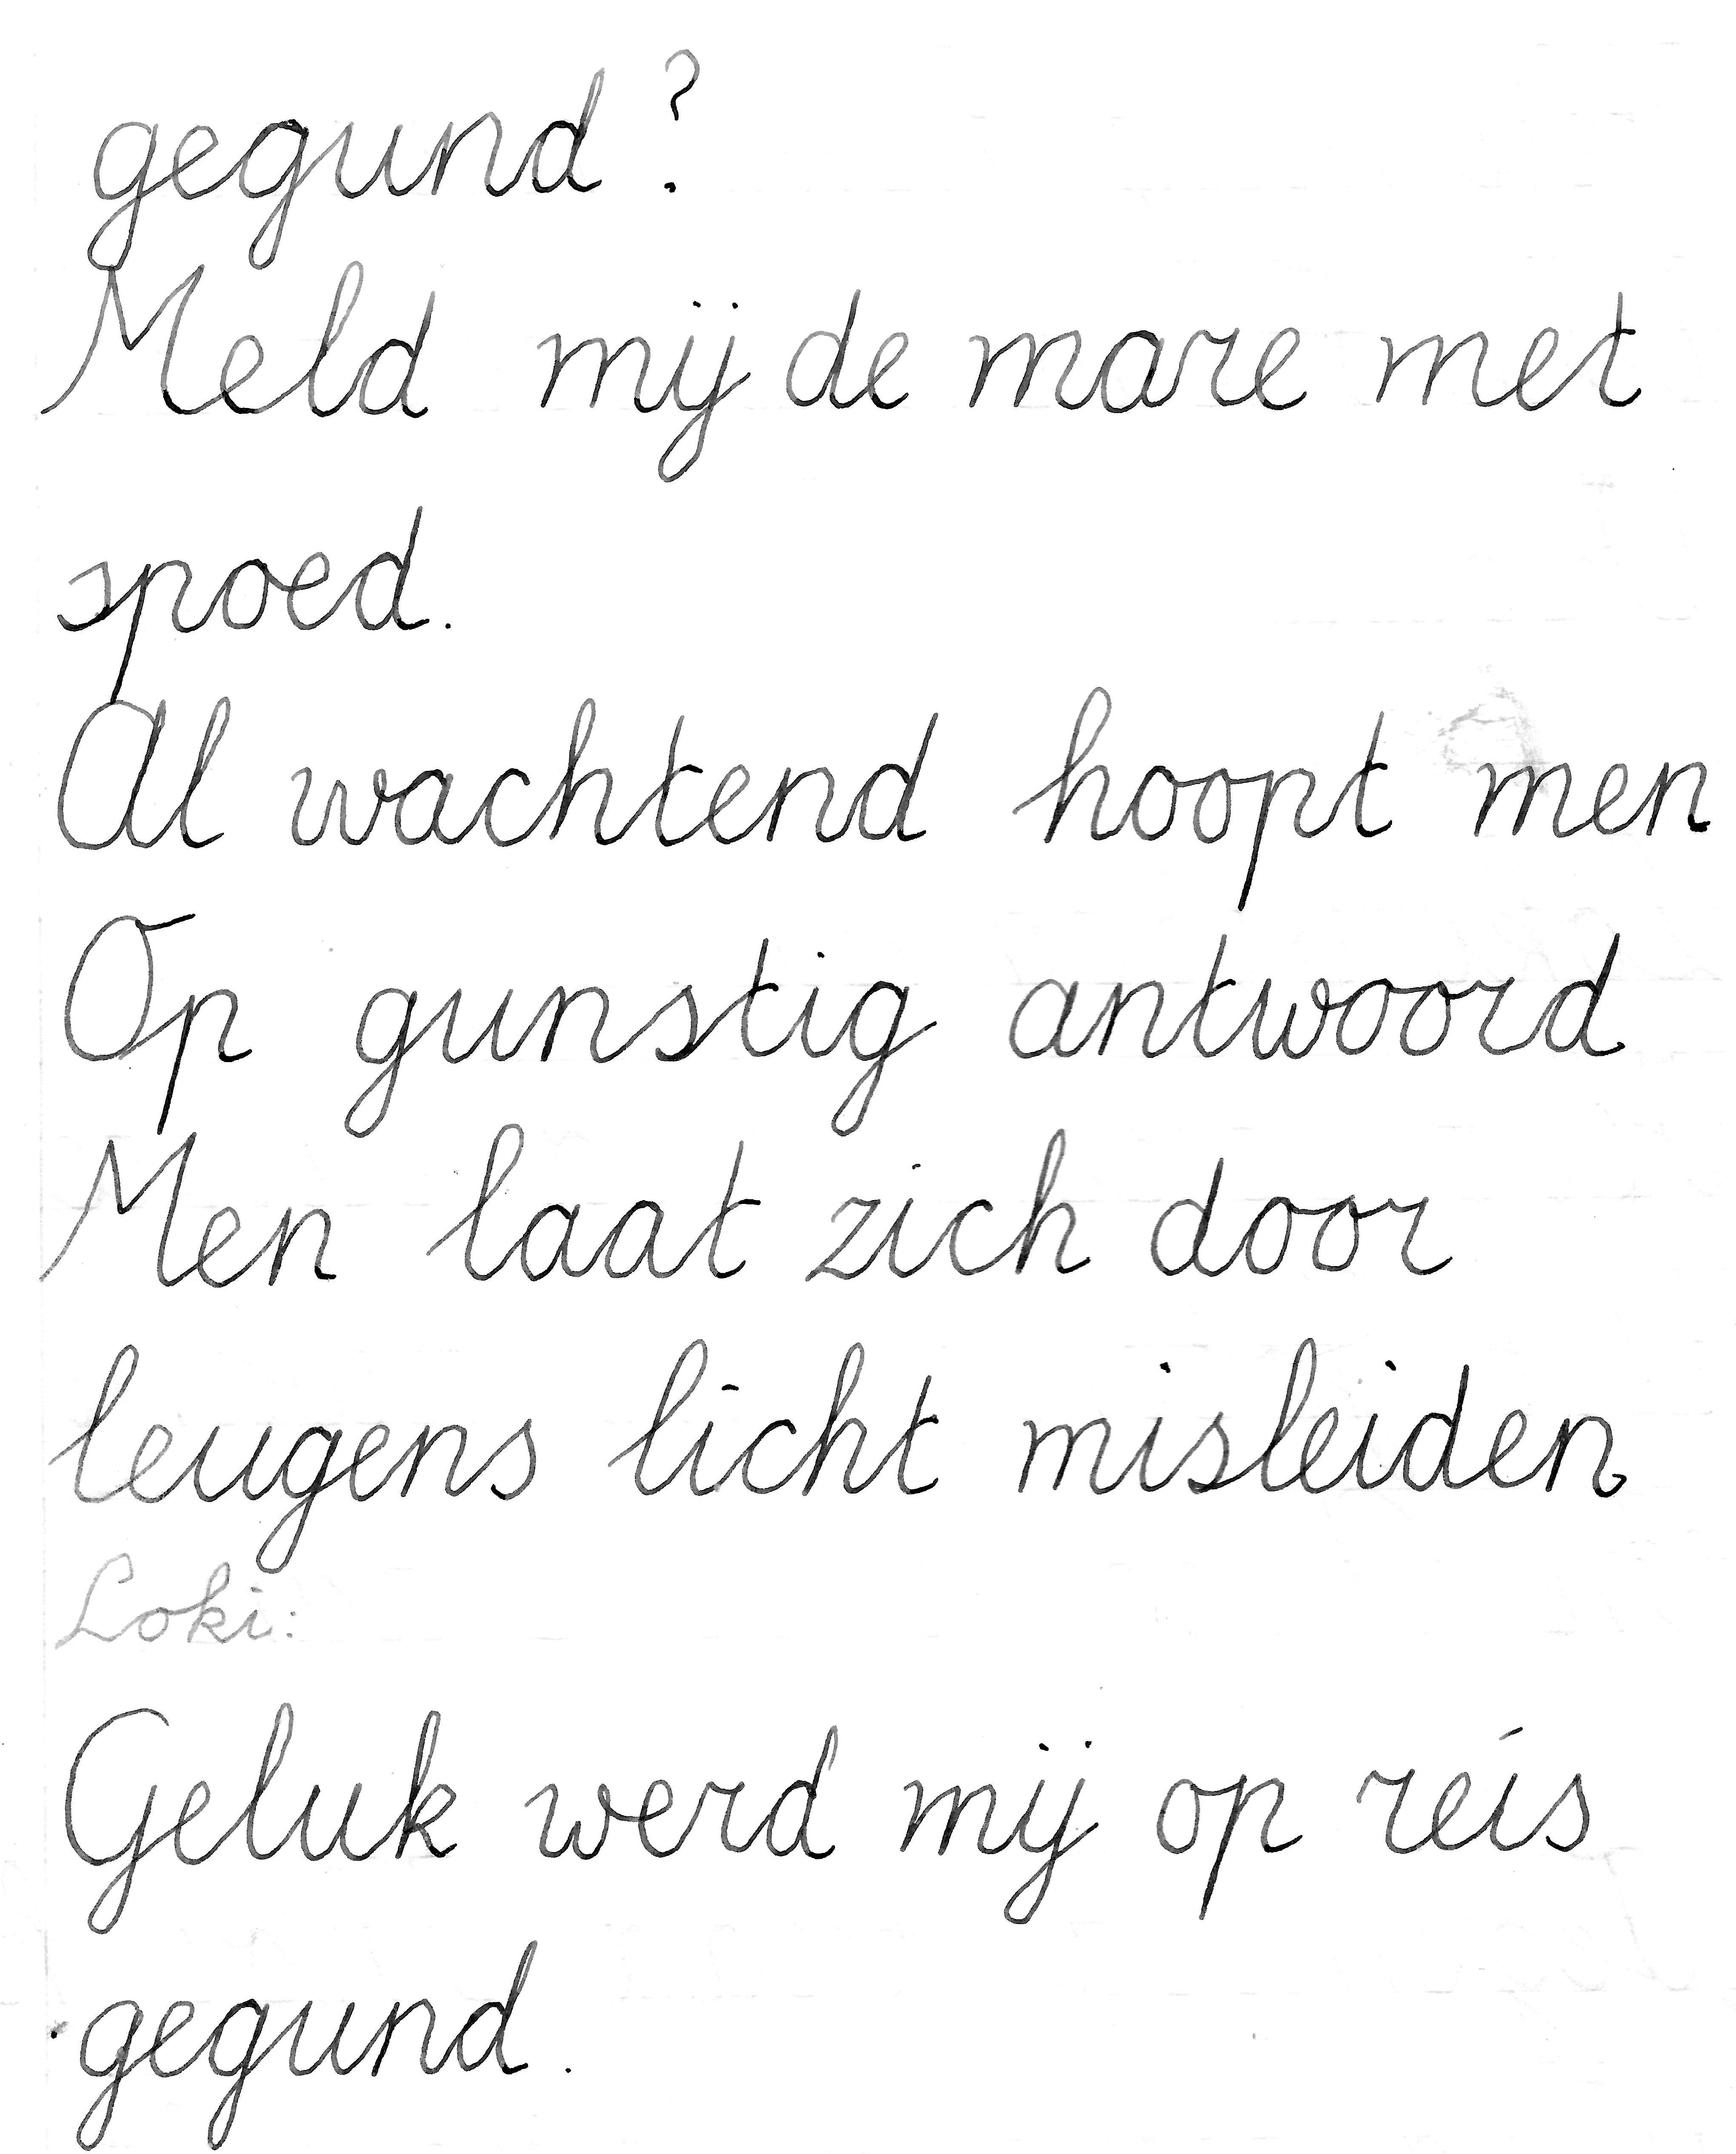 gegund?
Meld mij de mare met
spoed.
Al wachtend hoopt men
Op gunstig antwoord
Men laat zich door
leugens licht misleiden
Loki:
Geluk werd mij op reis
gegund.